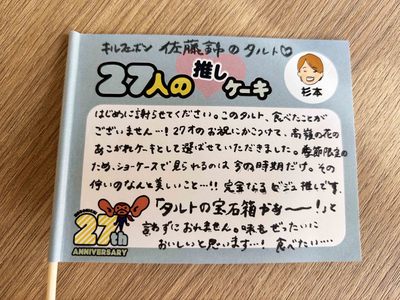 キルフェボン 佐藤錦のタルト♡
27人の推しケーキ
杉本
はじめに謝らせてください。このタルト、食べたことが
ございません…！27才のお祝いにかこつけて、高嶺の花の
あこがれケーキとして選ばせていただきました。季節限定の
ため、ショーケースで見られるのは今の時期だけ。その
佇いのなんと美しいこと…!! 完全なるビジュ推しです。
「タルトの宝石箱やぁ〜！」と
言わずにおれません。味もぜったいに
おいしいと思います…！食べたい…
27th
ANNIVERSARY